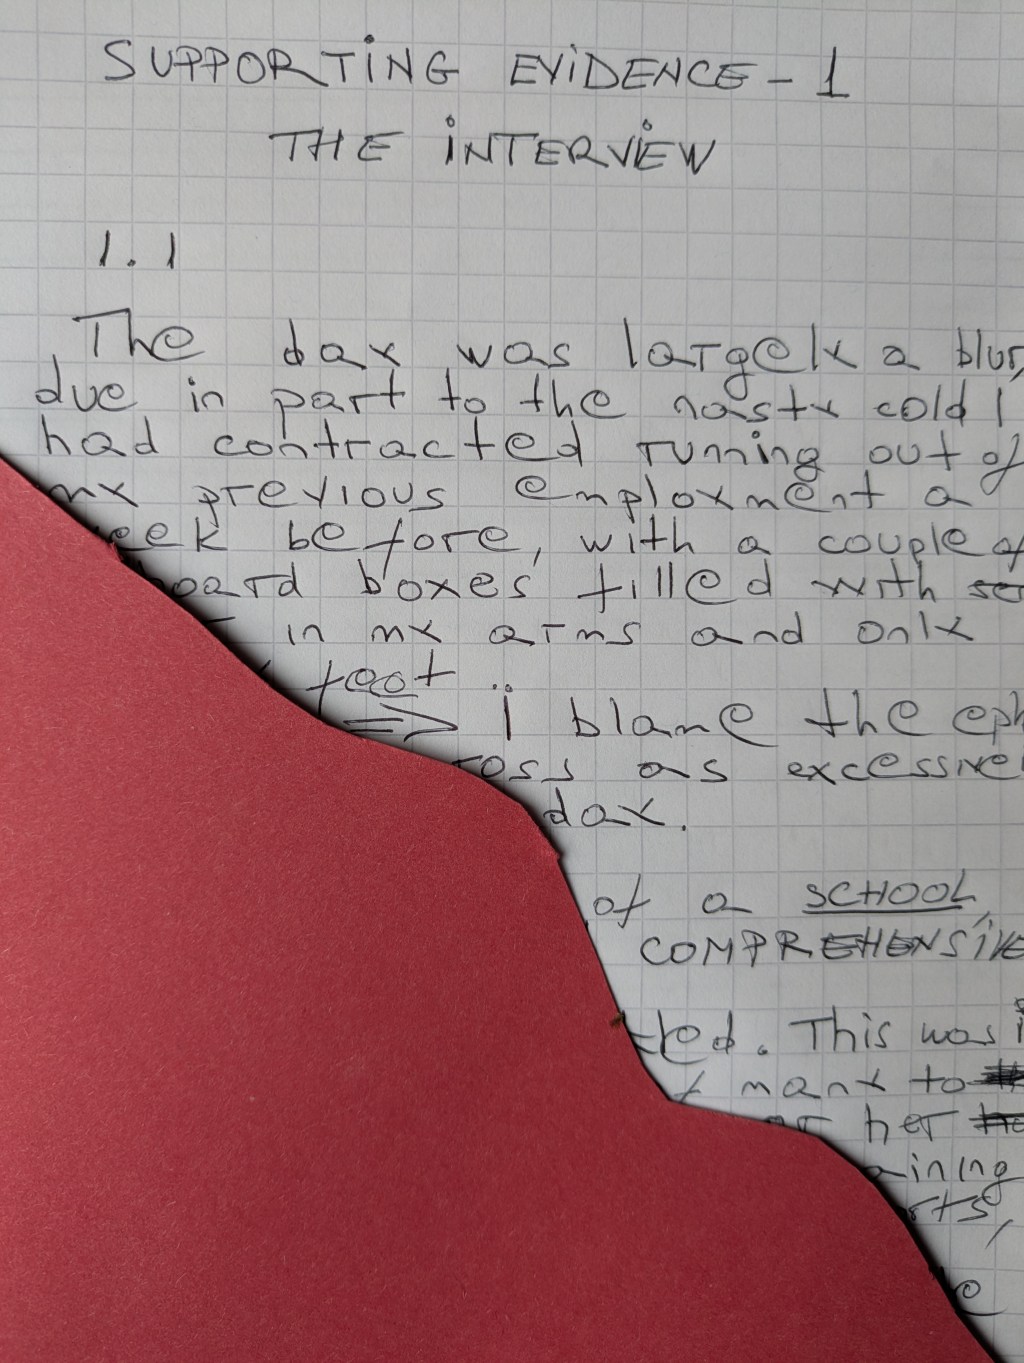 SUPPORTING EVIDENCE - 1
THE INTERVIEW
1.1
The day was largely a blur,
due in part to the nasty cold I
had contracted running out of
my previous employment a
eek before, with a couple of
board boxes filled with
in my arms and only
feet
⇒ I blame the eph
ross as excessive
day.
of a SCHOOL,
COMPREHENSIVE
ted. This was i
many to
her
aining
rts,